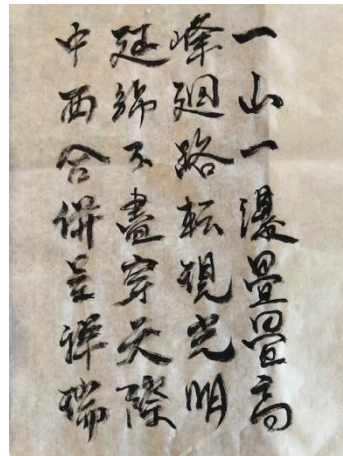 一山一瀑疊疊高
峰廻路転現光明
延綿不盡穿天際
中西合併呈祥瑞